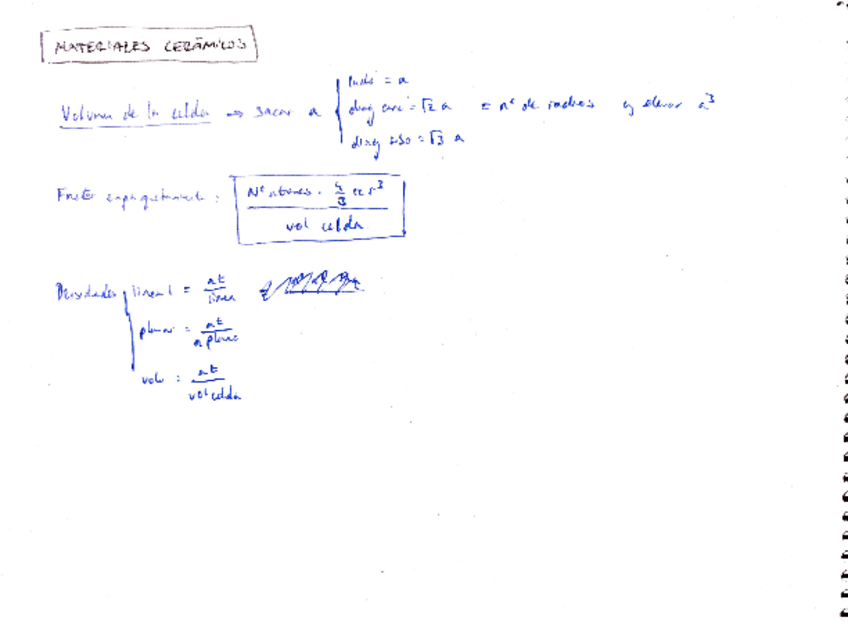 MATERIALES CERÁMICOS
lado = a
Volumen de la celda → sacar a diag cara = √2 a = nº de radios y elevar a³
diag = √3 a
Fact empaquetamiento : Nº átomos · 4/3 π r³
vol celda
Densidades lineal = at/linea
planar = at/a plano
volu = at/vol celda